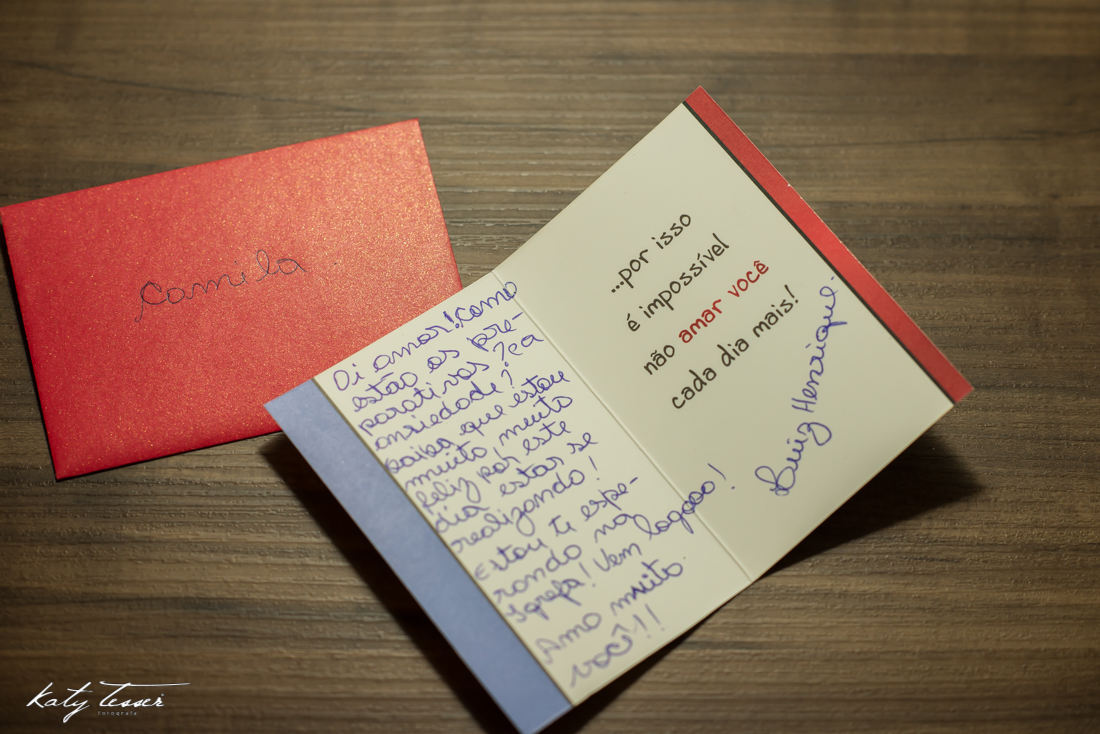 Camila
Oi amor! Como
estão os pre-
parativos? e a
ansiedade?
saiba que estou
muito, muito
feliz por este
dia estar se
realizando!
Estou te espe-
rando na
Igreja! Vem logooo!
Amo muito
você!!!
...por isso
é impossível
não amar você
cada dia mais!
Luiz Henrique.
Katy Tesser
fotografia